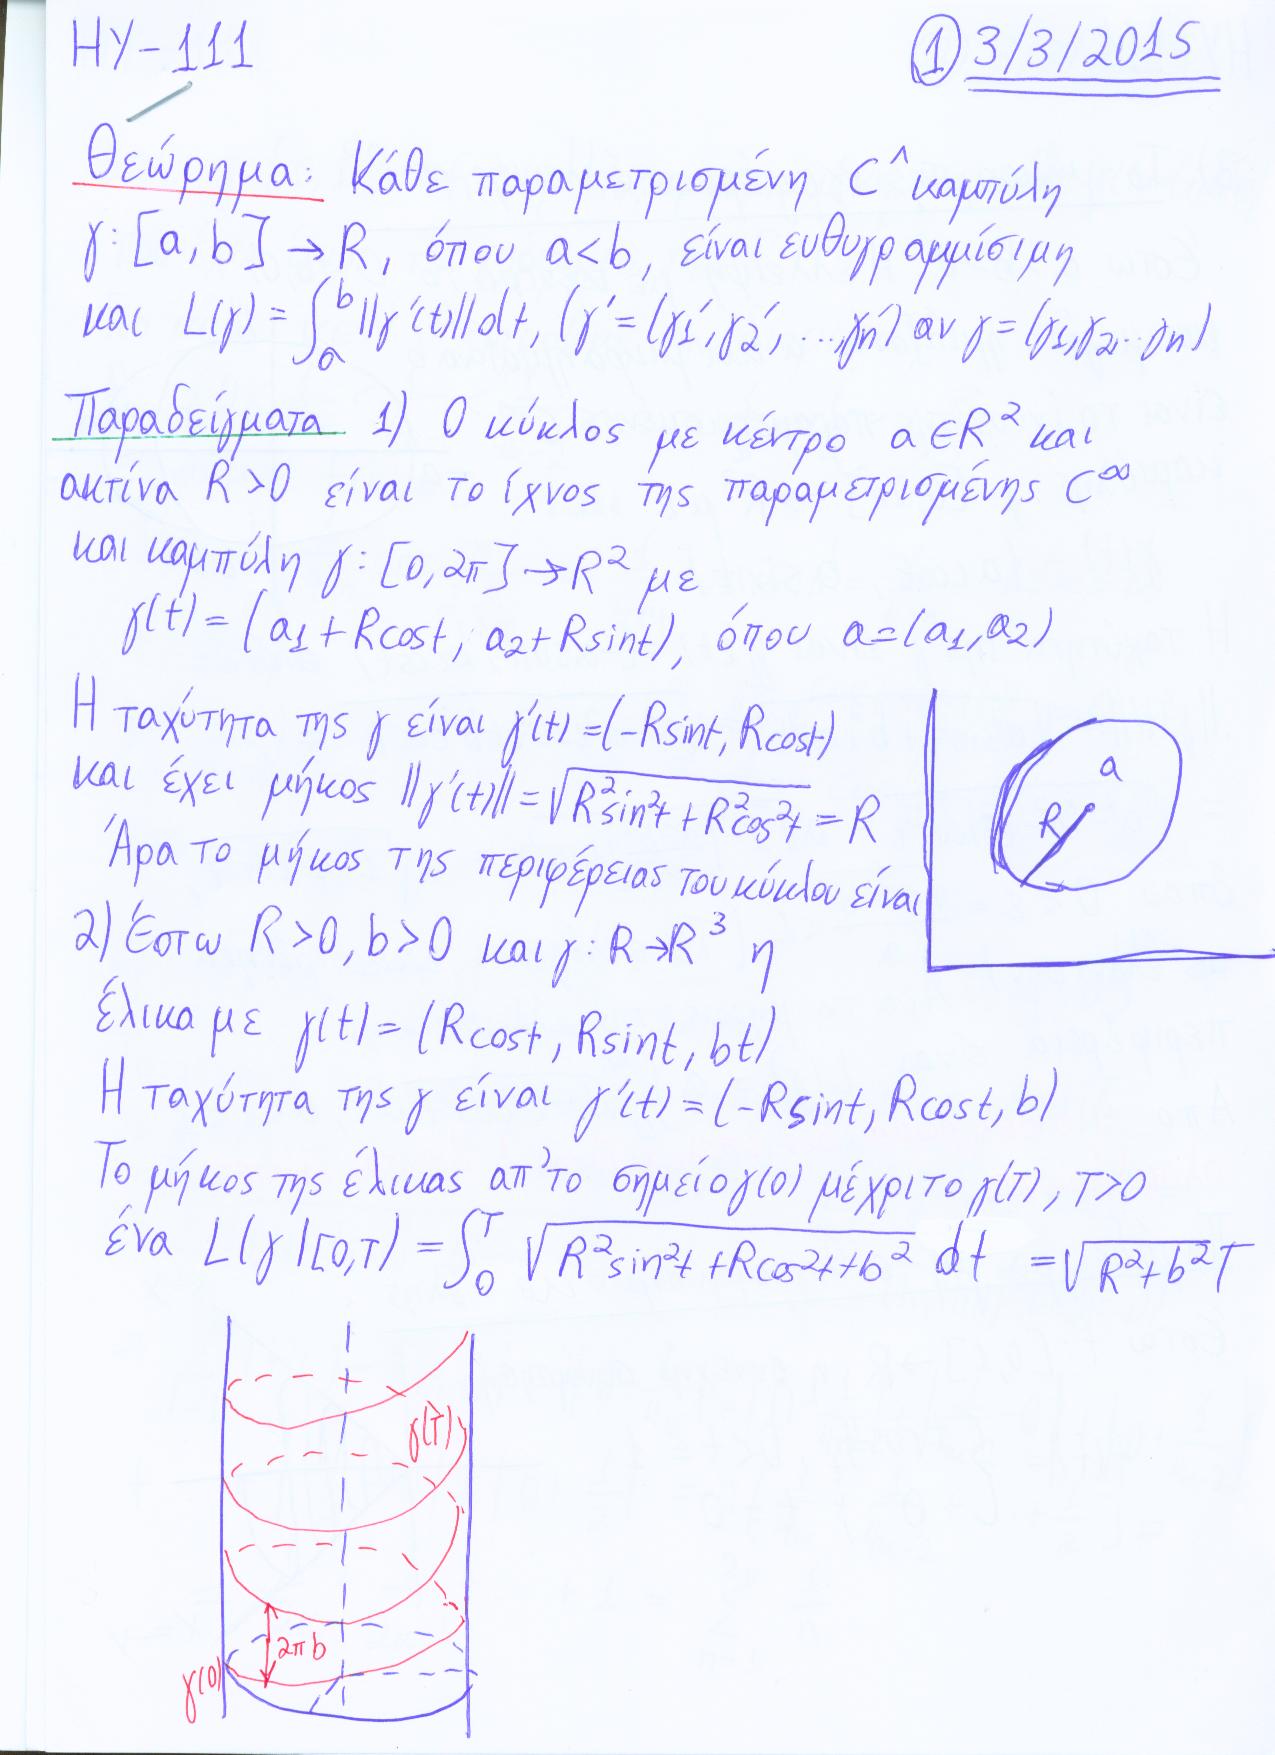 ΗΥ-111
① 3/3/2015
Θεώρημα: Κάθε παραμετρισμένη C^1 καμπύλη
γ: [a,b] → R, όπου a<b, είναι ευθυγραμμίσιμη
και L(γ) = ∫_a^b ||γ'(t)|| dt, (γ' = (γ1', γ2', ..., γn') αν γ = (γ1, γ2,.. γn)
Παραδείγματα 1) Ο κύκλος με κέντρο a ∈ R^2 και
ακτίνα R>0 είναι το ίχνος της παραμετρισμένης C^∞
και καμπύλη γ: [0, 2π] → R^2 με
γ(t) = (a1 + Rcost, a2 + Rsint), όπου a=(a1, a2)
Η ταχύτητα της γ είναι γ'(t) = (-Rsint, Rcost)
και έχει μήκος ||γ'(t)|| = √(R^2sin^2t + R^2cos^2t) = R
Άρα το μήκος της περιφέρειας του κύκλου είναι
a
R
2) Έστω R>0, b>0 και γ: R→R^3 η
έλικα με γ(t) = (Rcost, Rsint, bt)
Η ταχύτητα της γ είναι γ'(t) = (-Rsint, Rcost, b)
Το μήκος της έλικας απ'το σημείο γ(0) μέχρι το γ(T), T>0
ένα L(γ|[0,T) = ∫_0^T √(R^2sin^2t + Rcos^2t + b^2) dt = √(R^2+b^2) T
γ(T)
2πb
γ(0)